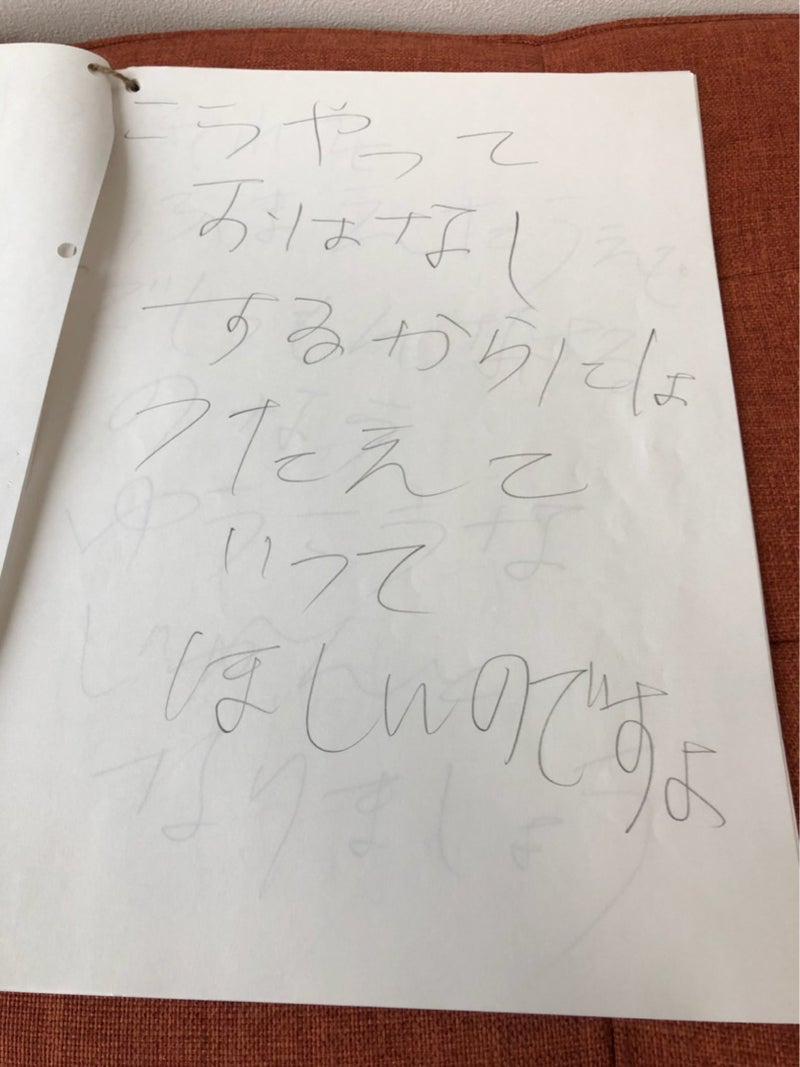 こうやって
おはなし
するからには
つたえて
いって
ほしいのですよ